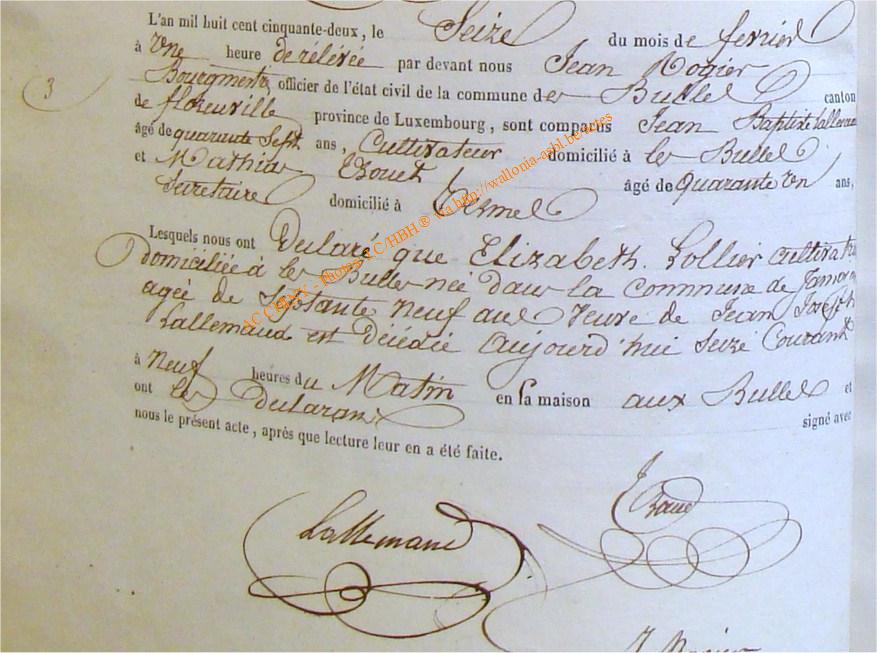 L'an mil huit cent cinquante-deux, le Seize du mois de fevrier
à Une heure de rélévée par devant nous Jean Rogier
3
Bourgmestre, officier de l'état civil de la commune des Bulles canton
de florenville province de Luxembourg, sont comparus Jean Baptiste Lallemand
âgé de quarante Sept ans, Cultivateur domicilié à les Bulles
et Mathias âgé de quarante un ans,
Secretaire domicilié à
Lesquels nous ont Declaré que Elizabeth Lollier cultivatrice
domiciliée à les Bulles née dans la commune de Jamoigne
agée de Soisante Neuf ans Veuve de Jean Joseph
Lallemand est Décédée aujourd'hui Seize Courant
à Neuf heures du Matin en sa maison aux Bulles et
ont les Declarans signé avec
nous le présent acte, après que lecture leur en a été faite.
Lallemand
AC CHINY - Photos TC/HBH® via http://wallonia-asbl.be/actes